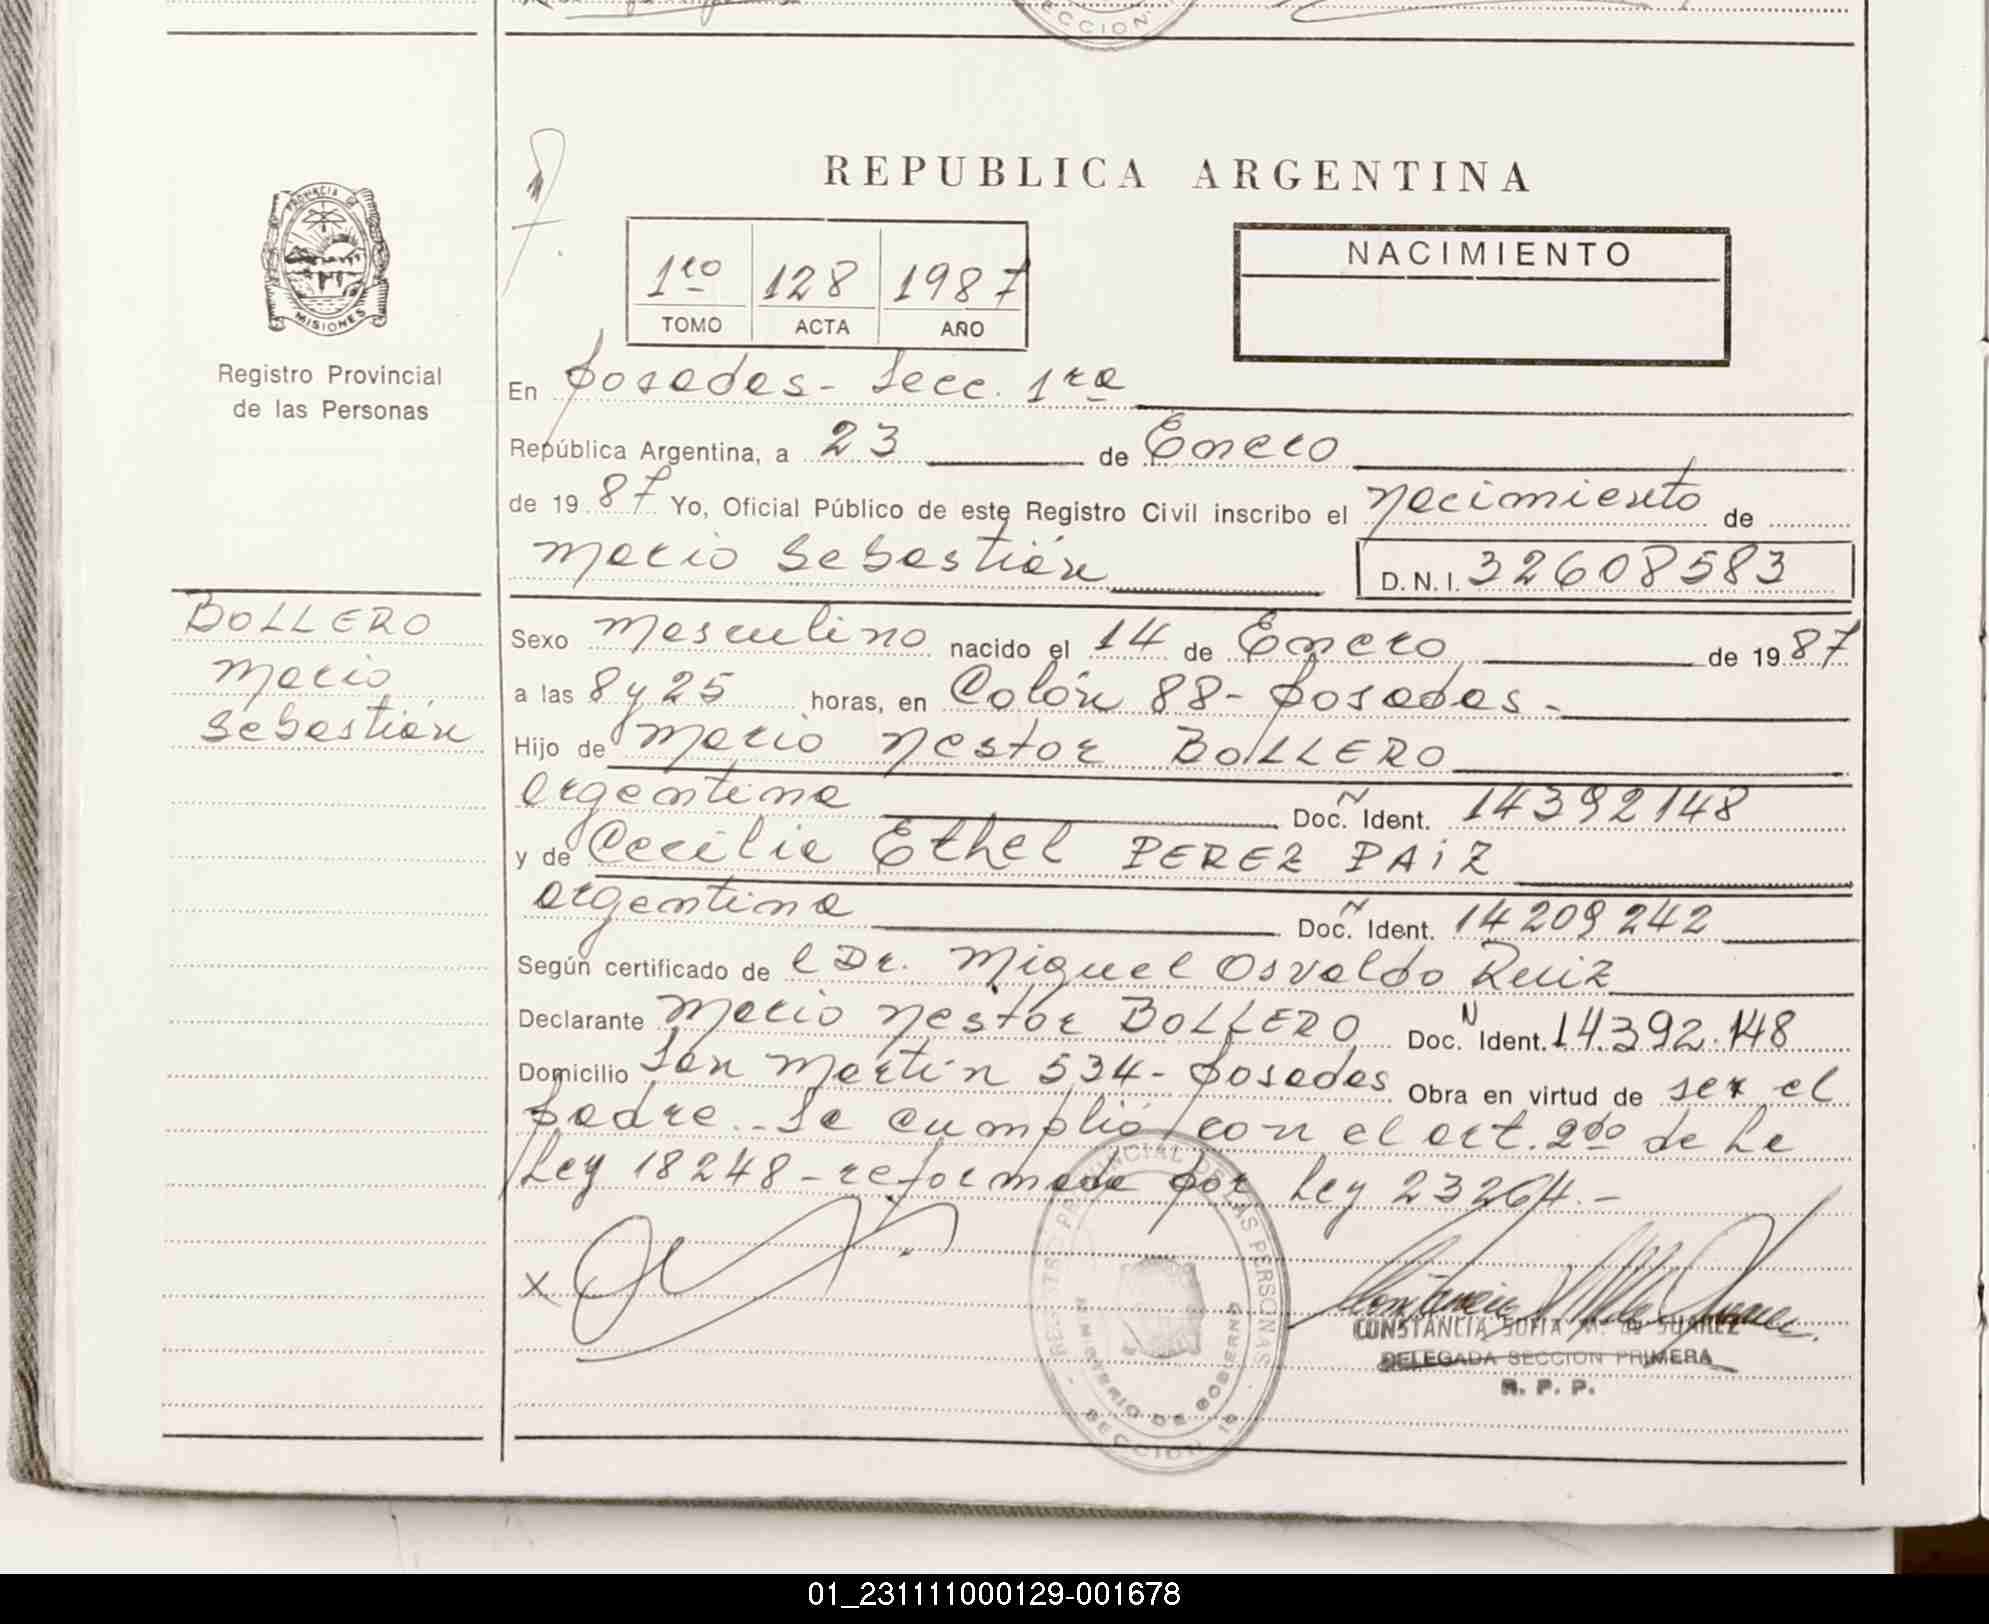 SECCION
REPUBLICA ARGENTINA
PROVINCIA DE
MISIONES
1ro 128 1987
TOMO ACTA AÑO
NACIMIENTO
Registro Provincial
de las Personas
En Posadas - Secc. 1ra
República Argentina, a 23 de Enero
de 19 87 Yo, Oficial Público de este Registro Civil inscribo el Nacimiento de
Mario Sebastián D.N.I. 32608583
BOLLERO
Mario
Sebastián
Sexo Masculino nacido el 14 de Enero de 19 87
a las 8 y 25 horas, en Colón 88 - Posadas -
Hijo de Mario Nestor BOLLERO
argentina Doc. Ident. 14392148
y de Cecilia Ethel PEREZ PAiZ
argentina Doc. Ident. 14209242
Según certificado de l Dr. Miguel Osvaldo Ruiz
Declarante Mario Nestor BOLLERO Doc. N Ident. 14.392.148
Domicilio San Martín 534 - Posadas Obra en virtud de ser el
padre.- Se cumplió con el art. 2do de la
Ley 18248 - reformada por Ley 23264.-
X
REGISTRO PROVINCIAL DE LAS PERSONAS
MINISTERIO DE GOBIERNO
SECCION 1a
CONSTANCIA SOFIA M. de SUAREZ
DELEGADA SECCION PRIMERA
R. P. P.
01_231111000129-001678